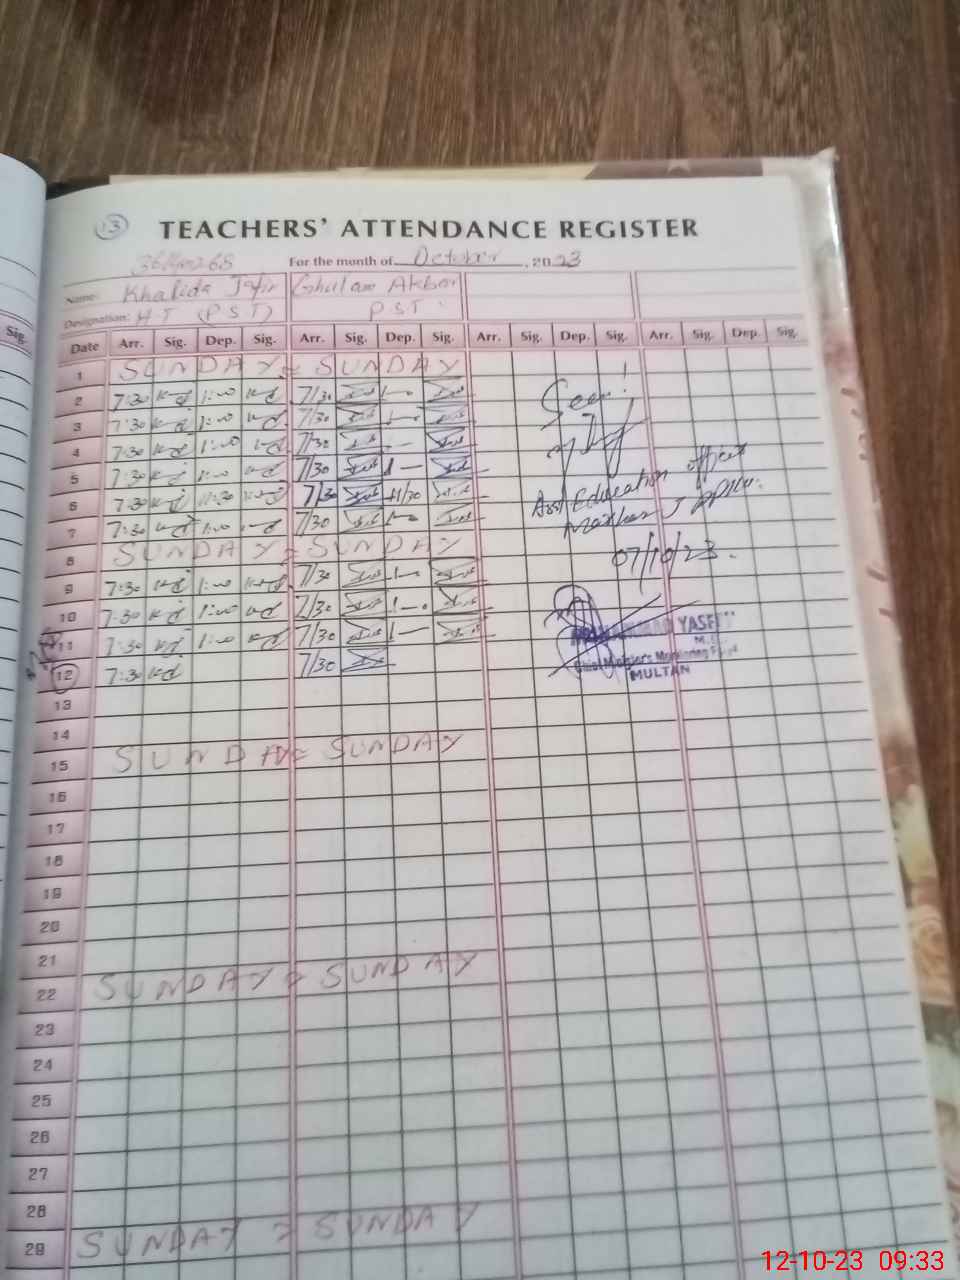 13 TEACHERS' ATTENDANCE REGISTER
For the month of October, 2023
Name: Khalida Jafir Ghulam Akbar
Designation: H T (PST) PST
Date Arr. Sig. Dep. Sig. Arr. Sig. Dep. Sig. Arr. Sig. Dep. Sig. Arr. Sig. Dep. Sig.
Sig.
1 SUNDAY = SUNDAY
2 7:30 1:00 7/30 1—
3 7:30 1:00 7/30 1—
4 7:30 1:00 7/30
5 7:30 1:00 7/30 1—
6 7:30 11:30 7/30 11/30
7 7:30 1:00 7/30 1—
8 SUNDAY = SUNDAY
9 7:30 1:00 7/30 1—
10 7:30 1:00 7/30 1—
11 7:30 1:00 7/30 1—
12 7:30 7/30
13
14
15 SUNDAY = SUNDAY
16
17
18
19
20
21
22 SUNDAY = SUNDAY
23
24
25
26
27
28
29 SUNDAY = SUNDAY
Seen!
Asst Education officer
07/10/23.
Chief Minister's Monitoring Force
MULTAN
12-10-23 09:33